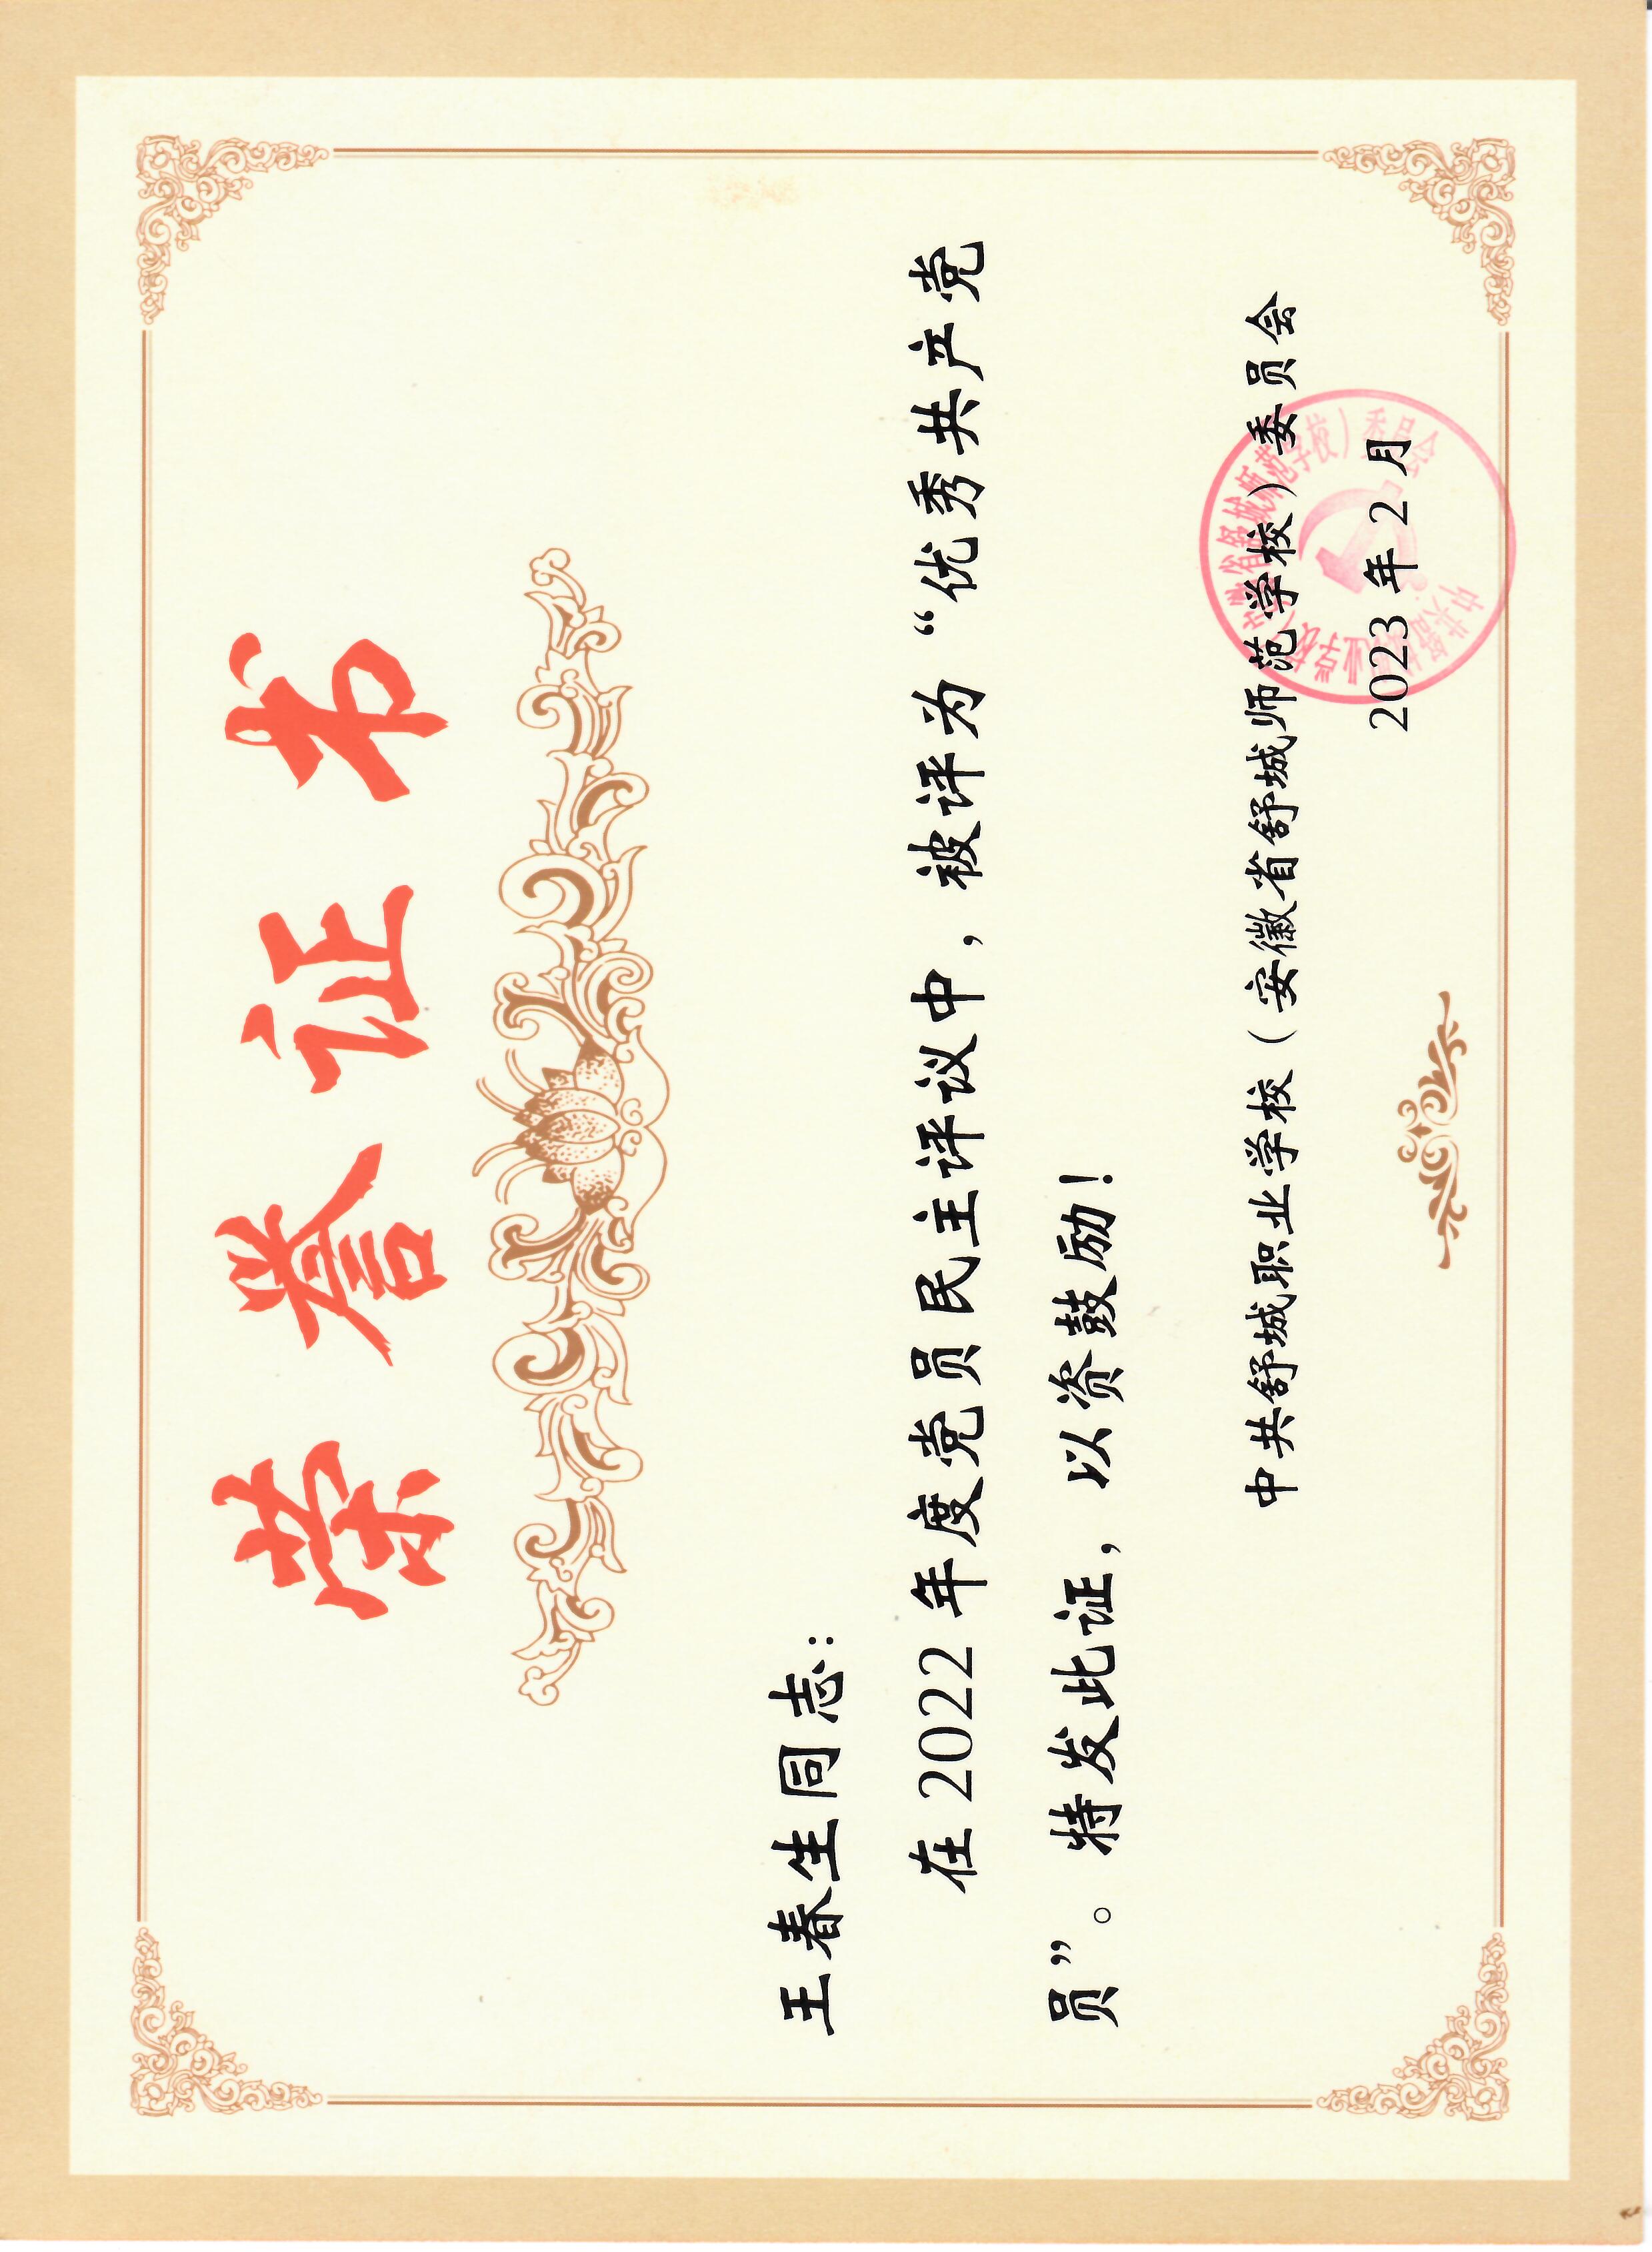 荣誉证书
王春生同志：
在2022年度党员民主评议中，被评为“优秀共产党
员”。特发此证，以资鼓励！
中共舒城职业学校（安徽省舒城师范学校）委员会
2023年2月